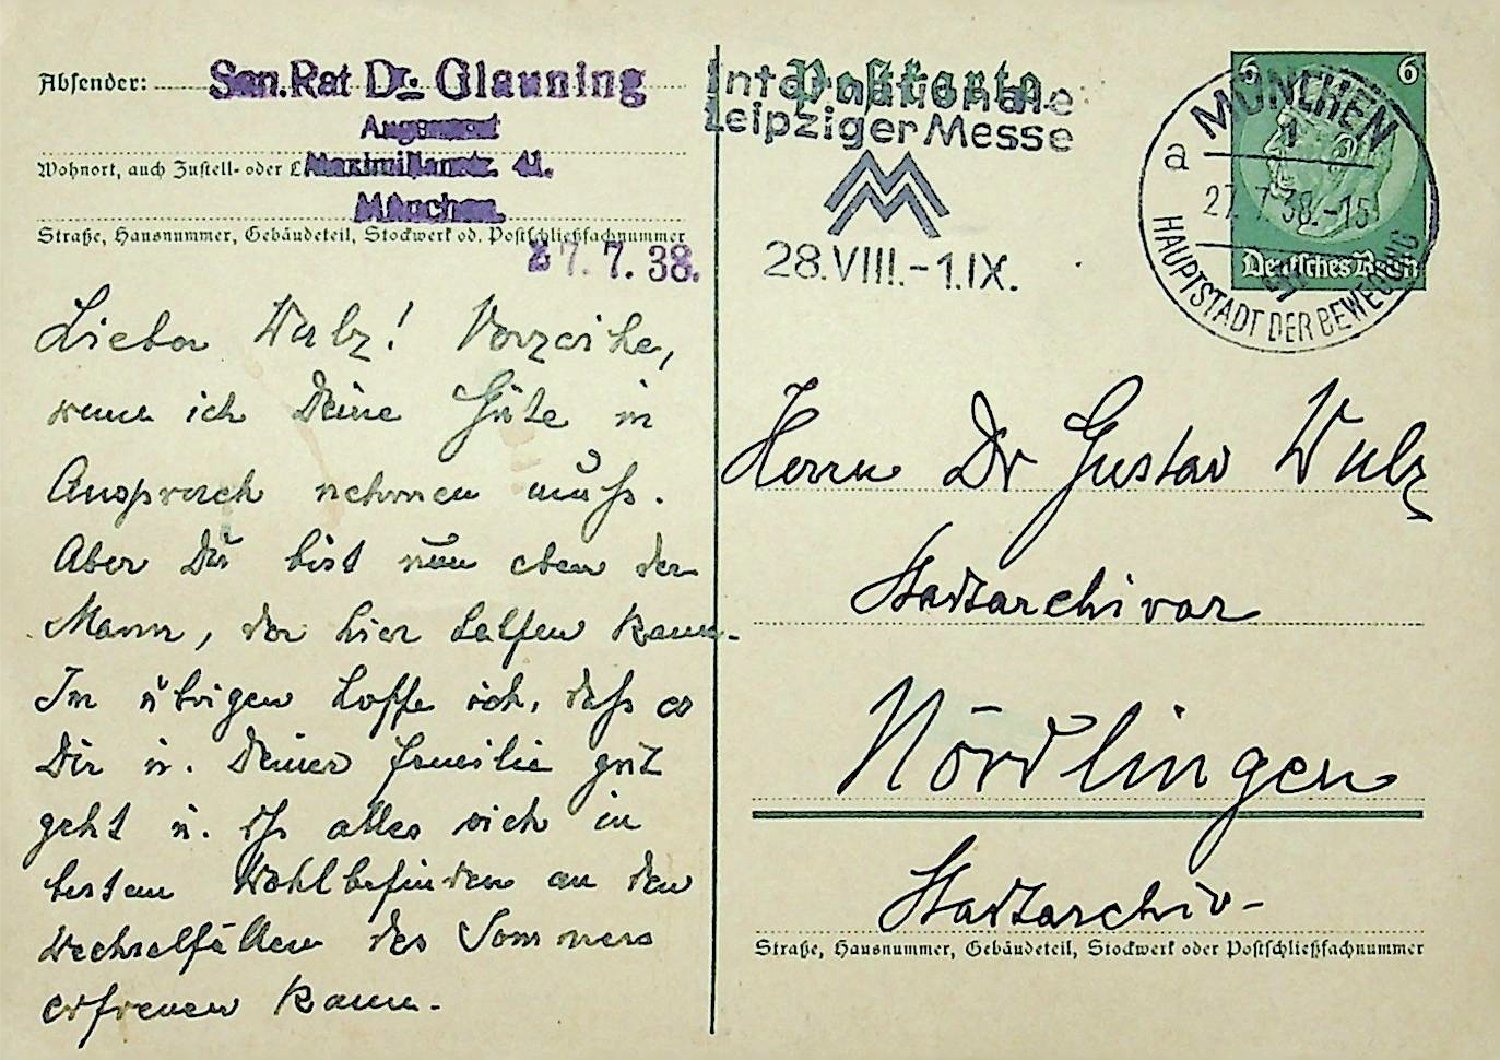 Absender: San.Rat Dr. Glauning
Augenarzt
Wohnort, auch Zustell- oder L Maximilianstr. 41.
München.
Straße, Hausnummer, Gebäudeteil, Stockwerk od. Postschließfachnummer
27. 7. 38.
Lieber Wulz! Verzeihe,
wenn ich Deine Güte in
Anspruch nehmen muß.
Aber Du bist nun eben der
Mann, der hier helfen kann.
Im übrigen hoffe ich, daß es
Dir u. Deiner Familie gut
geht u. Ihr alles sich in
bestem Wohlbefinden an den
Wechselfällen des Sommers
erfreuen kann.
Postkarte
Internationale
Leipziger Messe
28.VIII.-1.IX.
MÜNCHEN
a
27.7.38.-15
HAUPTSTADT DER BEWEGUNG
6 6
Deutsches Reich
Herrn Dr Gustav Wulz
Stadtarchivar
Nördlingen
Stadtarchiv-
Straße, Hausnummer, Gebäudeteil, Stockwerk oder Postschließfachnummer